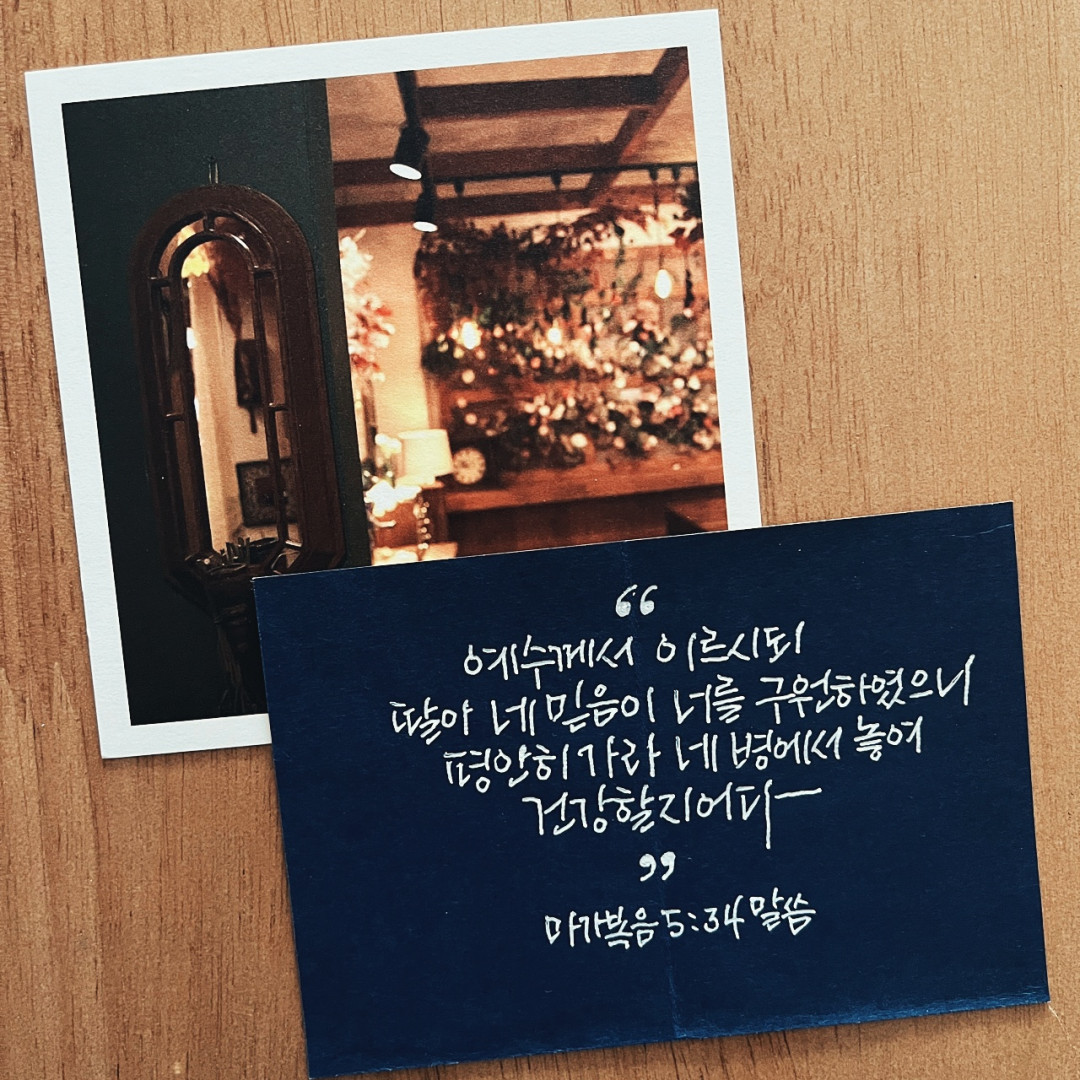 “
예수께서 이르시되
딸아 네 믿음이 너를 구원하였으니
평안히 가라 네 병에서 놓여
건강할지어다
”
마가복음 5:34 말씀